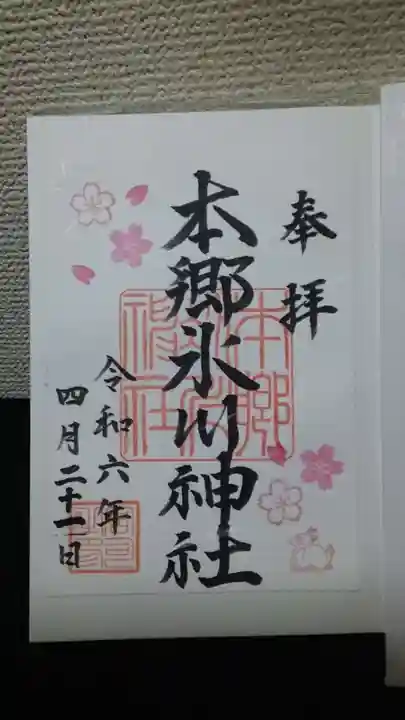 奉拝
本郷氷川神社
令和六年
四月二十一日